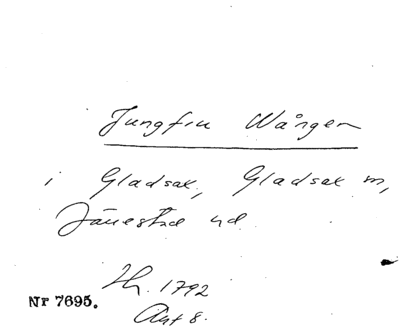 Jungfru Wången
i Gladsax, Gladsax sn,
Järrestad hd
Hr. 1792
Akt 8.
Nr 7695.